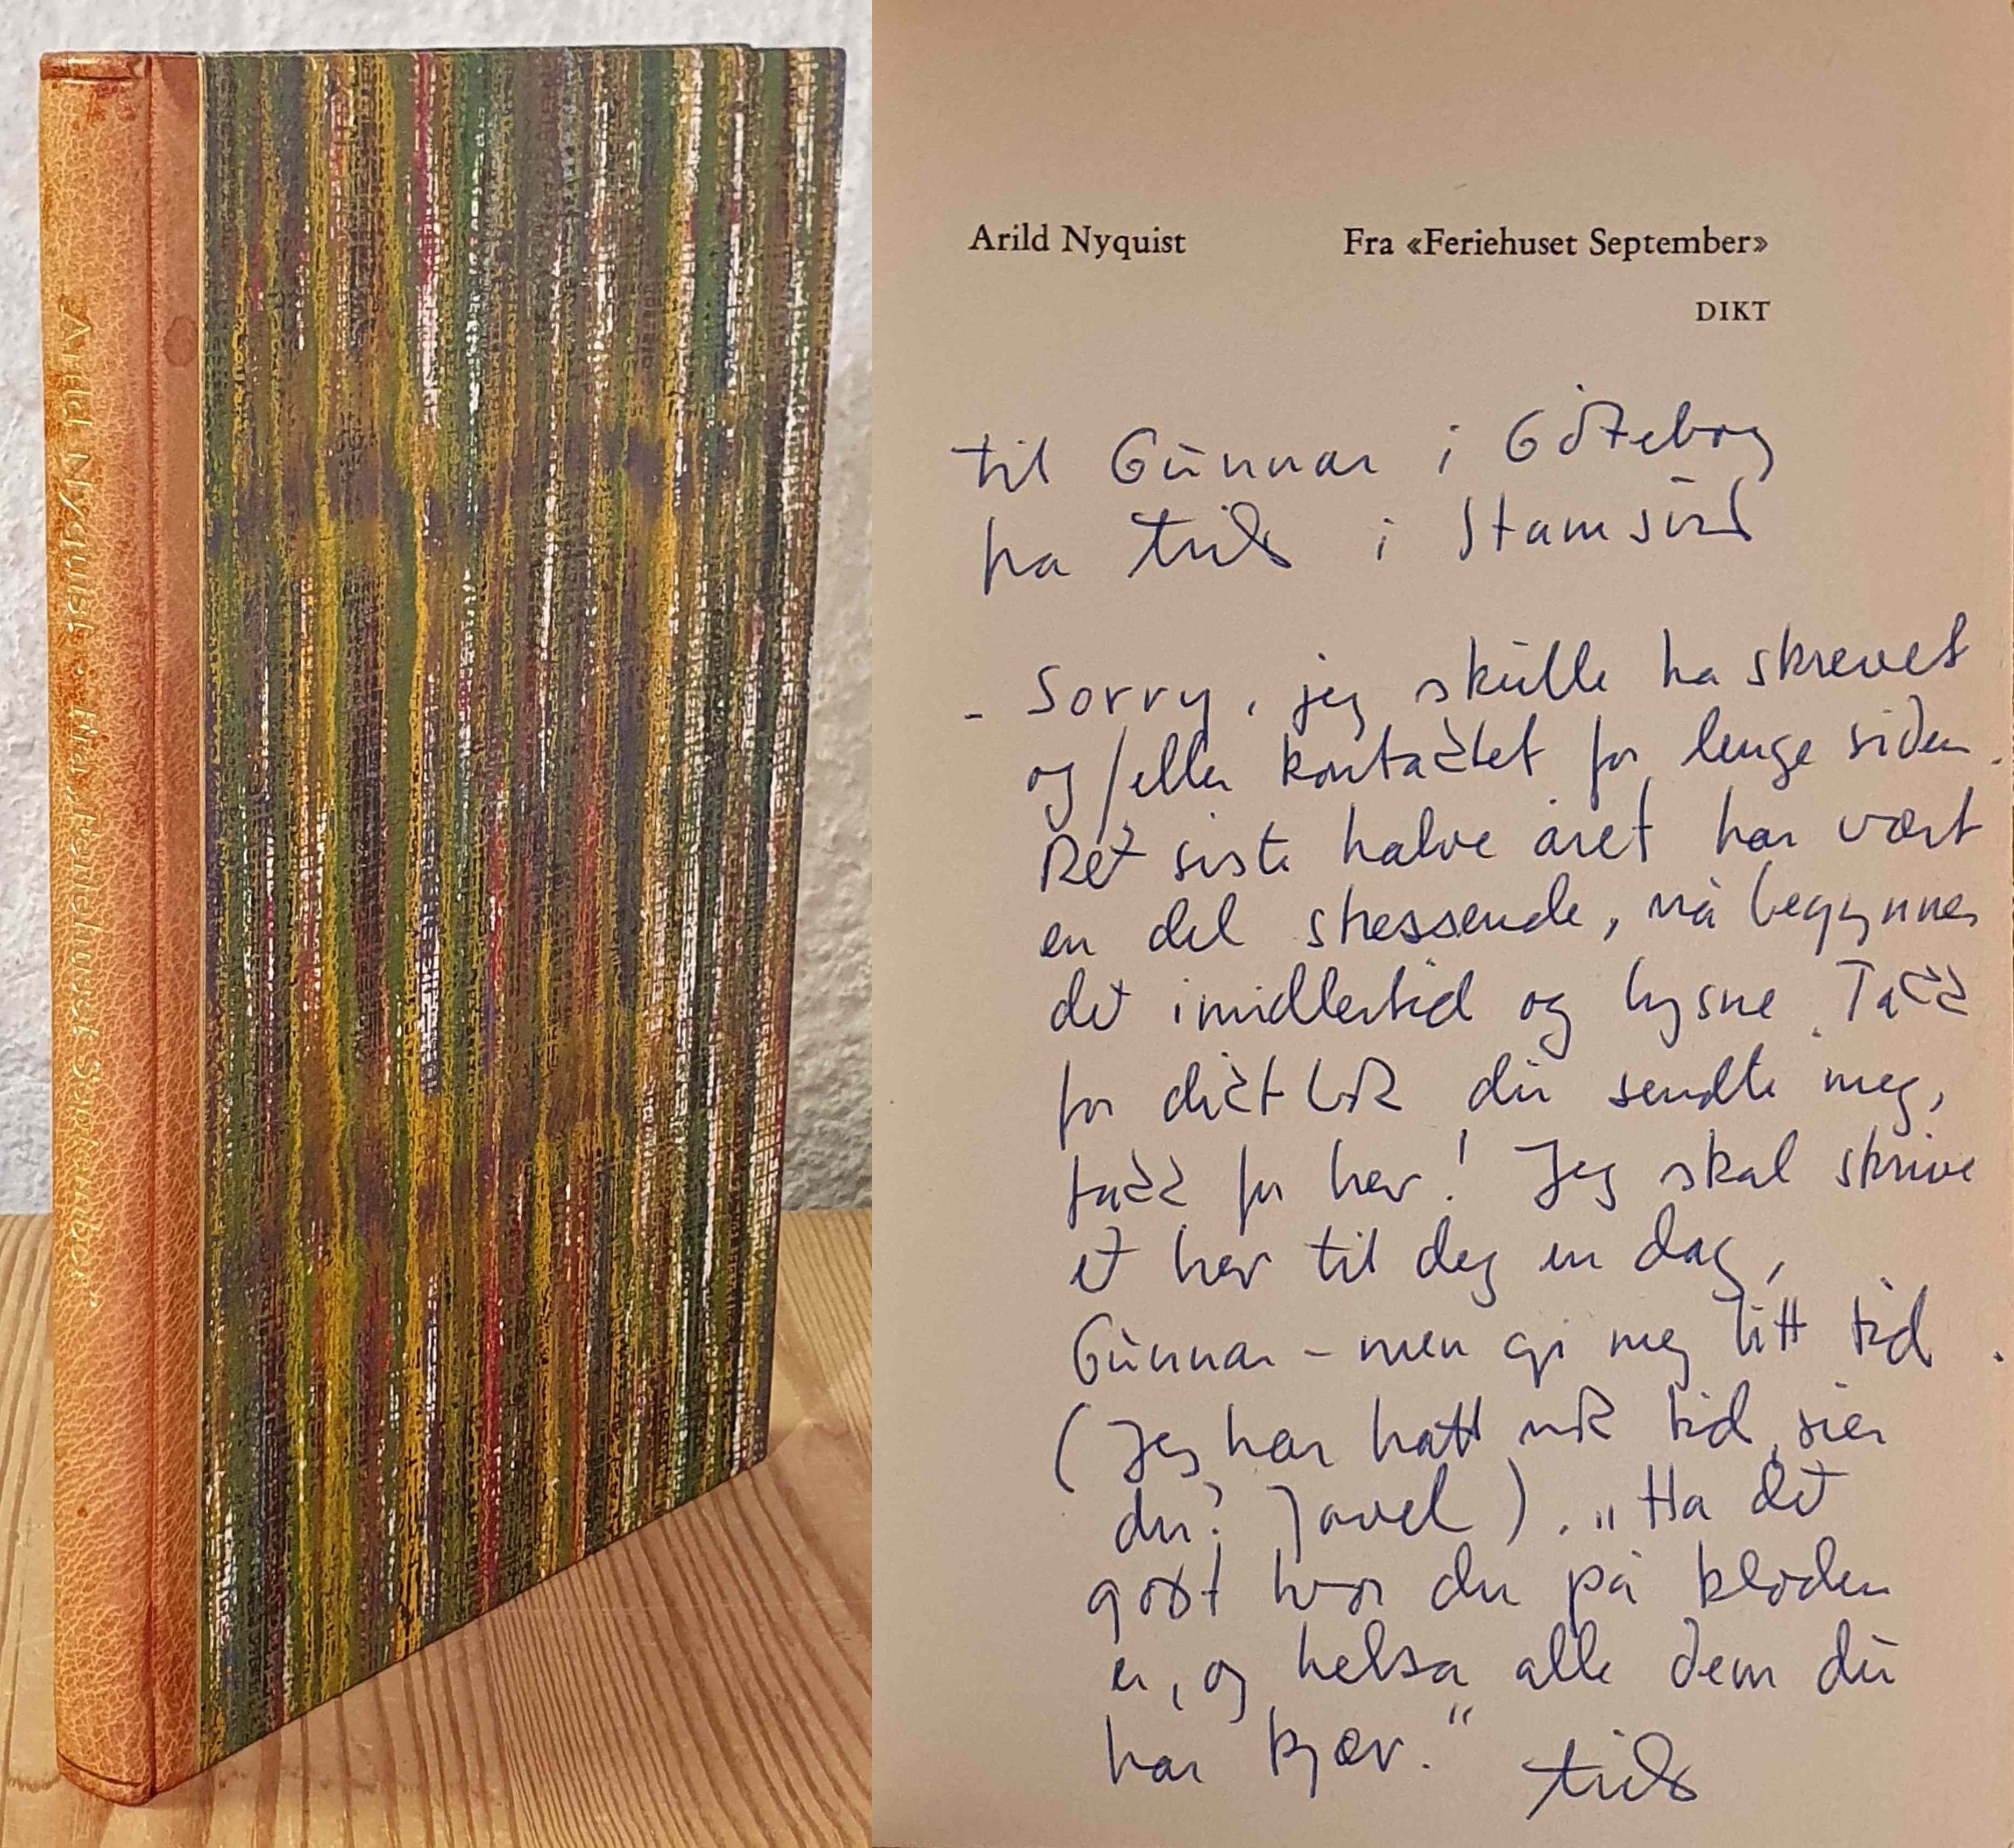 Arild Nyquist · Fra «Feriehuset September»
Arild Nyquist Fra «Feriehuset September»
DIKT
til Gunnar i Göteborg
fra i Stamsund
- Sorry, jeg skulle ha skrevet
og/eller kontacktet for lenge siden.
Det siste halve året har vært
en del stressende, nå begynner
det imidlertid og lysne. Tack
for dicktbok du sendte meg,
tack for brev! Jeg skal skrive
et brev til deg en dag,
Gunnar - men gi meg litt tid.
(Jeg har hatt nok tid, sier
du? Javel). „Ha det
godt hvor du på kloden
er, og helsa alle dem du
har kjær."